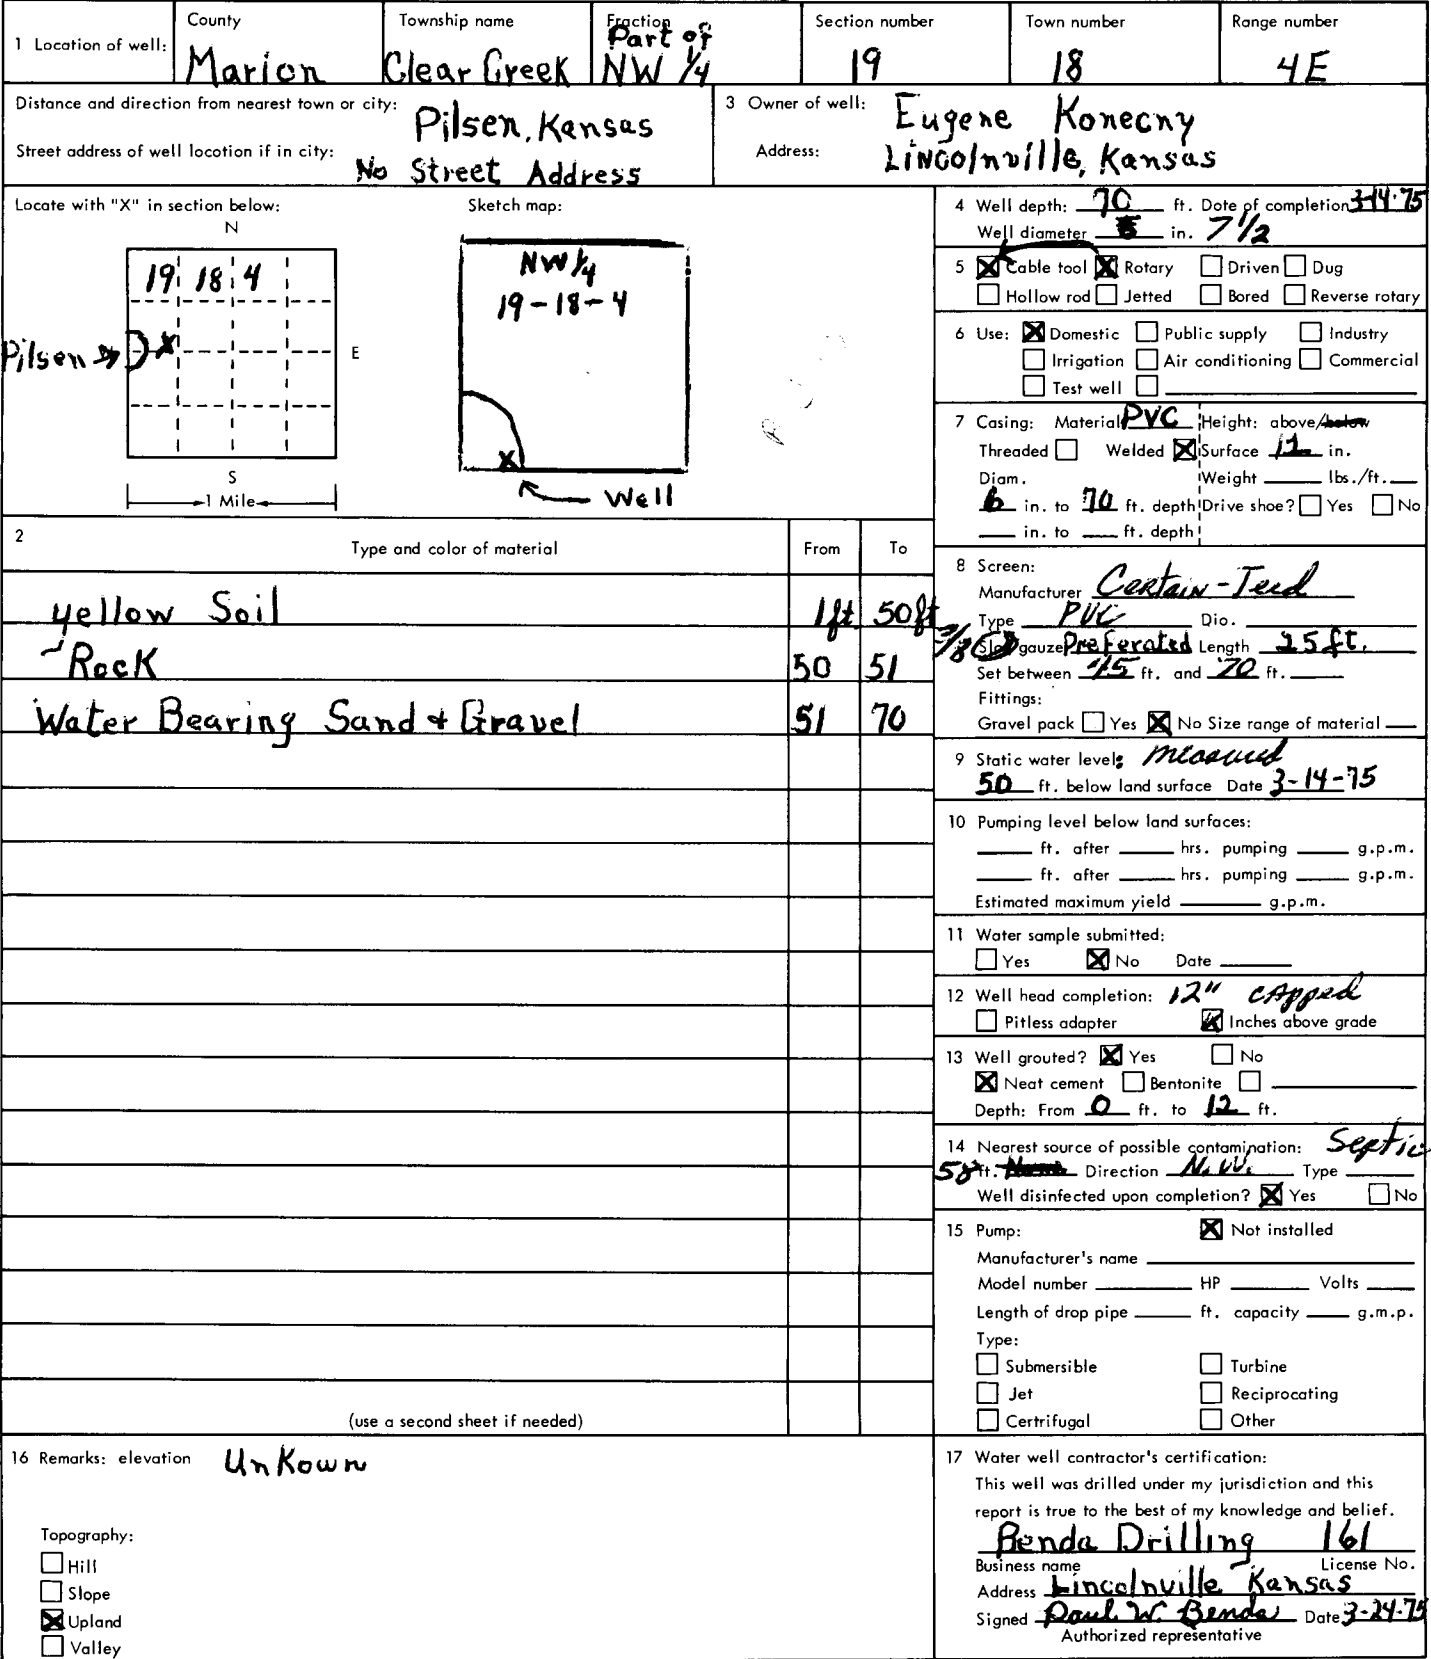 1 Location of well:
County
Marion
Township name
Clear Creek
Fraction
Part of
NW 1/4
Section number
19
Town number
18
Range number
4E
Distance and direction from nearest town or city: Pilsen, Kansas
Street address of well locotion if in city: No Street Address
3 Owner of well: Eugene Konecny
Address: Lincolnville, Kansas
Locate with "X" in section below:
N
19 18 4
Pilsen
X
E
S
1 Mile
Sketch map:
NW 1/4
19-18-4
X
Well
2 Type and color of material From To
yellow Soil 1ft 50ft
Rock 50 51
Water Bearing Sand + Gravel 51 70
(use a second sheet if needed)
4 Well depth: 70 ft. Date of completion 3-14-75
Well diameter in. 7 1/2
5 Cable tool Rotary Driven Dug
Hollow rod Jetted Bored Reverse rotary
6 Use: Domestic Public supply Industry
Irrigation Air conditioning Commercial
Test well
7 Casing: Material PVC Height: above/below
Threaded Welded Surface 12 in.
Diam. Weight lbs./ft.
6 in. to 70 ft. depth Drive shoe? Yes No
in. to ft. depth
8 Screen:
Manufacturer Certain-Teed
Type PVC Dio.
gauze Preferated Length 25 ft.
Set between 45 ft. and 70 ft.
Fittings:
Gravel pack Yes No Size range of material
9 Static water level: measured
50 ft. below land surface Date 3-14-75
10 Pumping level below land surfaces:
ft. after hrs. pumping g.p.m.
ft. after hrs. pumping g.p.m.
Estimated maximum yield g.p.m.
11 Water sample submitted:
Yes No Date
12 Well head completion: 12" capped
Pitless adapter Inches above grade
13 Well grouted? Yes No
Neat cement Bentonite
Depth: From 0 ft. to 12 ft.
14 Nearest source of possible contamination: Septic
58 ft. Direction N.W. Type
Well disinfected upon completion? Yes No
15 Pump: Not installed
Manufacturer's name
Model number HP Volts
Length of drop pipe ft. capacity g.m.p.
Type:
Submersible Turbine
Jet Reciprocating
Certrifugal Other
16 Remarks: elevation UnKown
Topography:
Hill
Slope
Upland
Valley
17 Water well contractor's certification:
This well was drilled under my jurisdiction and this
report is true to the best of my knowledge and belief.
Benda Drilling 161
Business name License No.
Address Lincolnville Kansas
Signed Paul W. Benda Date 3-24-75
Authorized representative